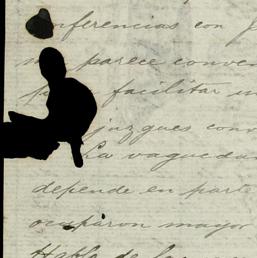 conferencias con
parece conven
facilitar
juzgues conv
La vaguedad
depende en parte
ocuparon mayor
Hablo de las